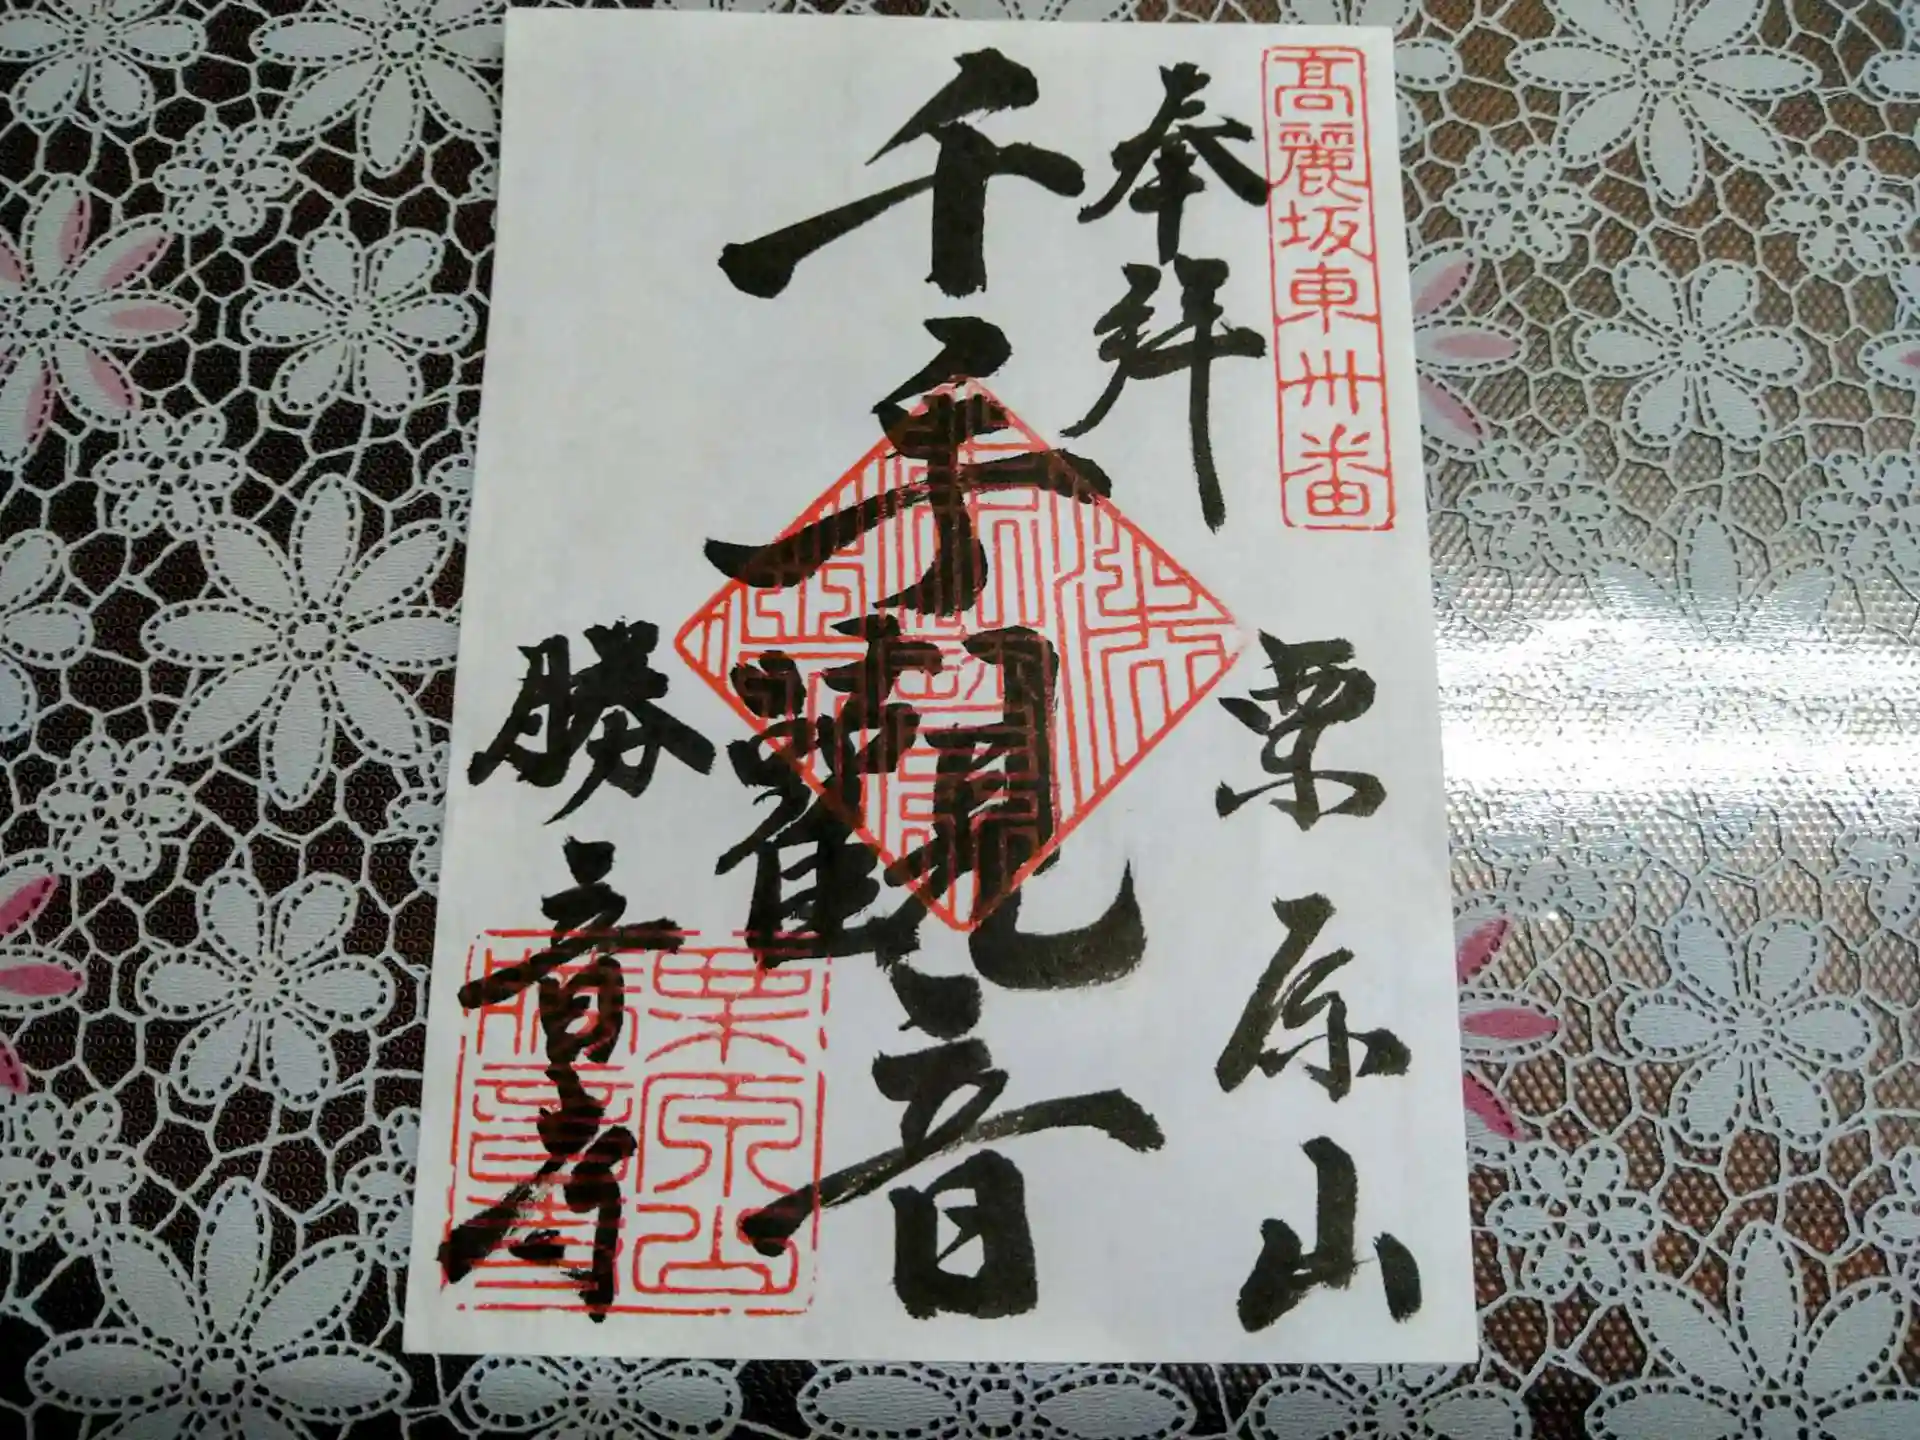 髙麗坂東卅番
奉拝
栗原山
千手観音
勝音寺
栗原山
勝音寺